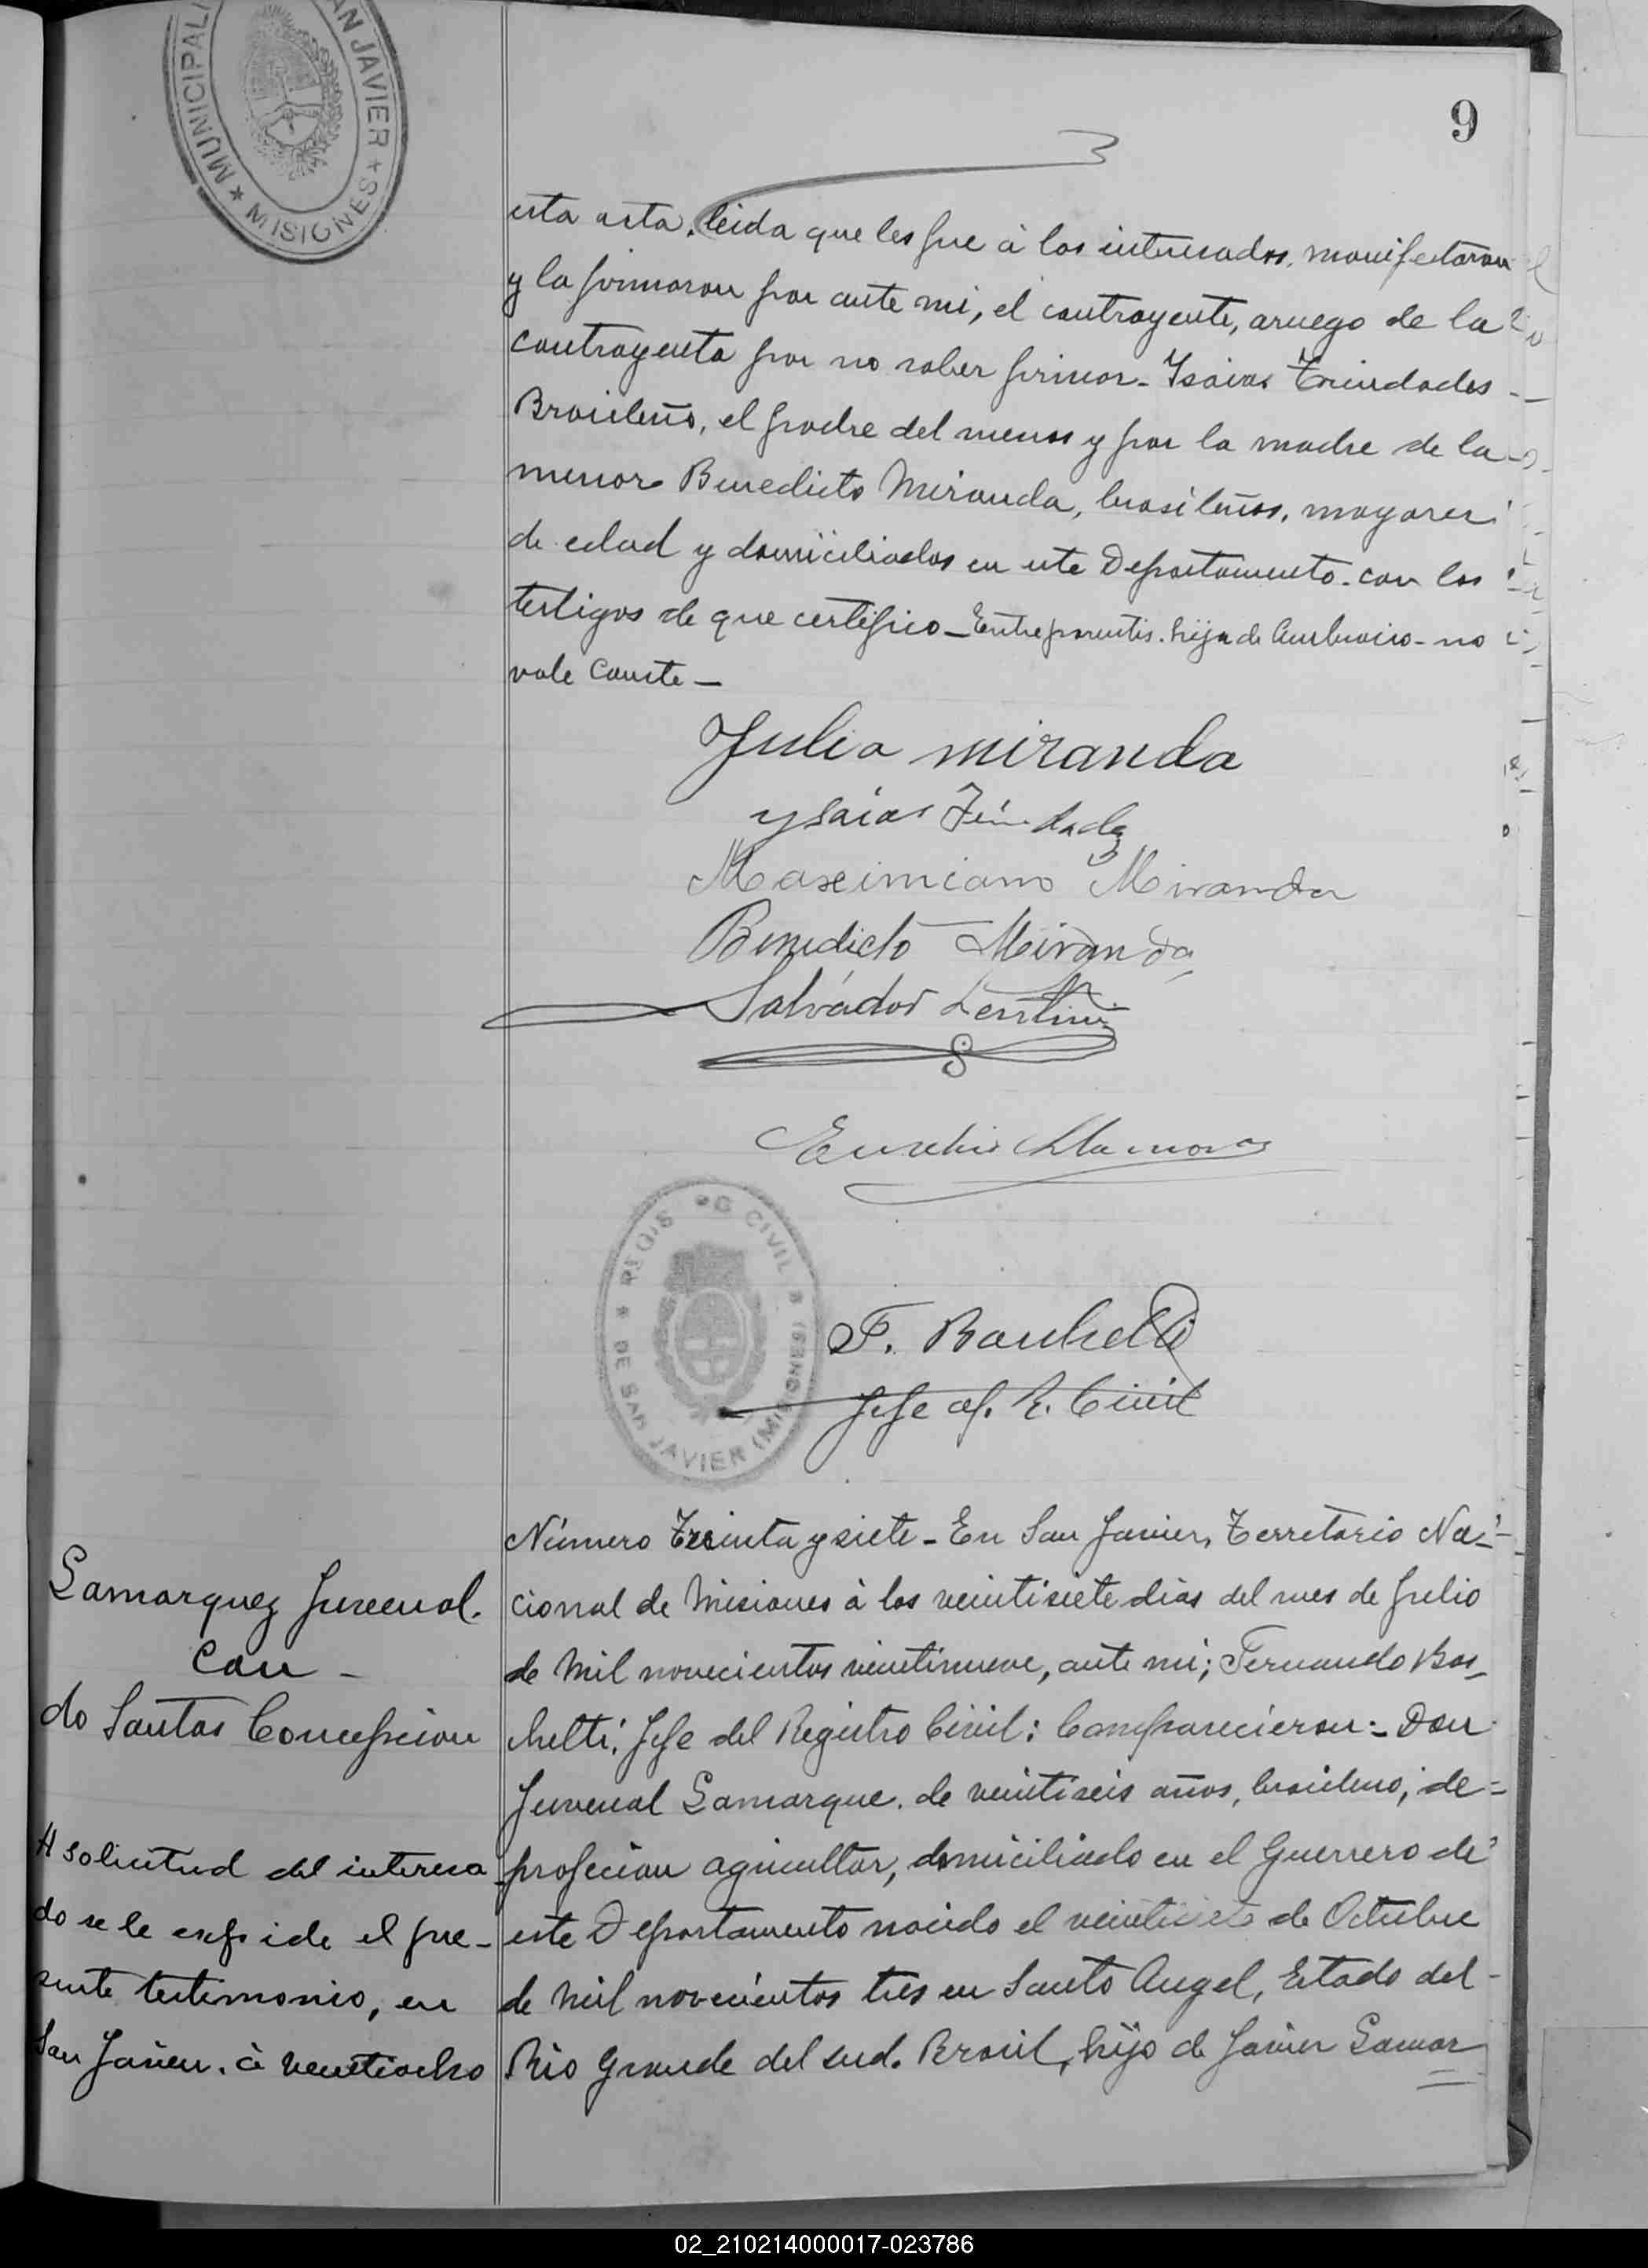 MUNICIPALI
AN JAVIER
* MISIONES *
9
esta acta. leida que les fue à los interesados, manifestaron
y la firmaron por ante mi, el contrayente, aruego de la
contrayenta por no saber firmar - Isaias Trindades -
Brasileño, el padre del menor y por la madre de la
menor Benedicto Miranda, brasileños, mayores
de edad y domiciliados en este Departamento. con los
testigos de que certifico - Entreparentis. hija de Ambrocio - no
vale Conste -
Julio miranda
ysaias
Maseimiano Miranda
Benedicto Miranda
Salvador
Eusebio Llamosas
REGIS CIVIL
* DE SAN JAVIER (MISIONES) *
F. Boschetti
Jefe R. Civil
Número Treinta y siete - En San Javier, Territorio Na-
cional de Misiones à los veintisiete dias del mes de Julio
de Mil novecientos veintinueve, ante mi; Fernando Bos-
chetti, Jefe del Registro Civil: Comparecieron: - Don
Juvenal Gamarque. de veintiseis años, brasilero, de =
profecion agricultor, domiciliado en el Guerrero de
este Departamento nacido el de Octubre
de Mil novecientos tres en Santo Angel, Estado del -
Rio Grande del sud. Brasil, hijo de Javier Gamar
Gamarquez Juvenal.
Con -
do Santos Concepcion
A solicitud del interesa
do se le expide el pre-
sente testimonio, en
San Javier. à veintiocho
02_210214000017-023786